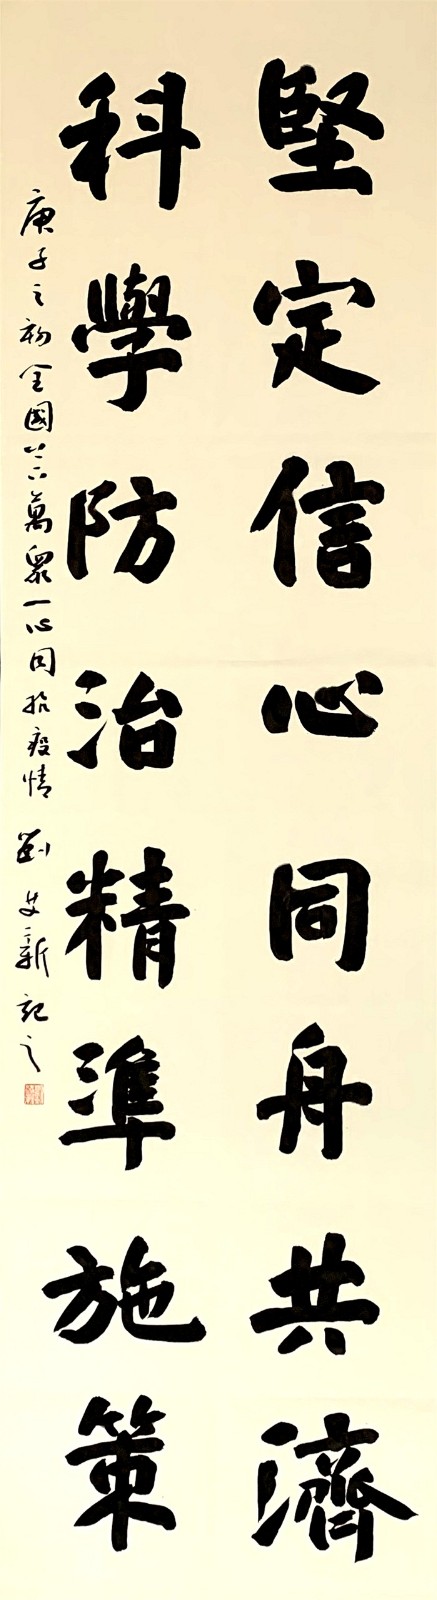 堅定信心同舟共濟
科學防治精準施策
庚子之初全國上下萬眾一心同抗疫情 劉艾新記之